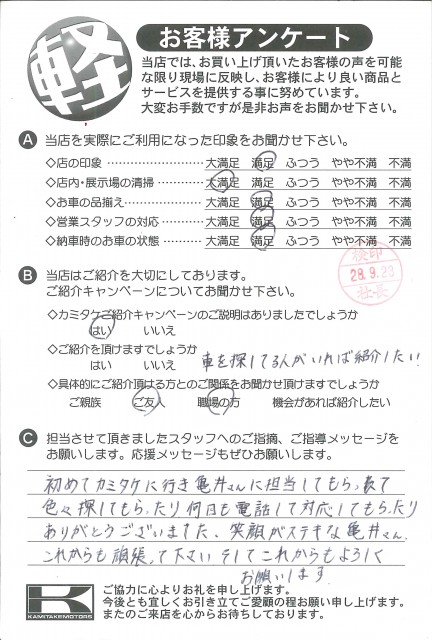 軽
お客様アンケート
当店では、お買い上げ頂いたお客様の声を可能
な限り現場に反映し、お客様により良い商品と
サービスを提供する事に努めています。
大変お手数ですが是非お声をお聞かせ下さい。
A 当店を実際にご利用になった印象をお聞かせ下さい。
◇店の印象 ……………………… 大満足 満足 ふつう やや不満 不満
◇店内・展示場の清掃 ………… 大満足 満足 ふつう やや不満 不満
◇お車の品揃え ………………… 大満足 満足 ふつう やや不満 不満
◇営業スタッフの対応 ………… 大満足 満足 ふつう やや不満 不満
◇納車時のお車の状態 ………… 大満足 満足 ふつう やや不満 不満
検印
28.9.23
社長
B 当店はご紹介を大切にしております。
ご紹介キャンペーンについてお聞かせ下さい。
◇カミタケご紹介キャンペーンのご説明はありましたでしょうか
はい いいえ
◇ご紹介を頂けますでしょうか
はい いいえ 車を探してる人がいれば紹介したい!
◇具体的にご紹介頂ける方とのご関係をお聞かせ頂けますでしょうか
ご親族 ご友人 職場の方 機会があれば紹介したい
C 担当させて頂きましたスタッフへのご指摘、ご指導メッセージを
お願いします。応援メッセージもぜひお願いします。
初めてカミタケに行き亀井さんに担当してもらって
色々探してもらったり何日も電話して対応してもらったり
ありがとうございました、笑顔がステキな亀井さん、
これからも頑張って下さい そしてこれからもよろしく
お願いします
KAMITAKEMOTORS
ご協力に心よりお礼を申し上げます。
今後とも宜しくお引き立てご愛顧の程お願い申し上げます。
またのご来店を心からお待ちしております。